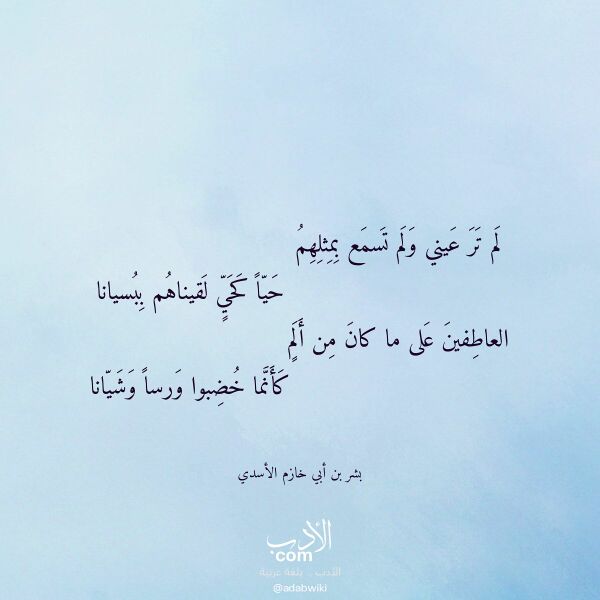 لَم تَرَ عَيني وَلَم تَسمَع بِمِثلِهِمُ
حَيّاً كَحَيٍّ لَقيناهُم بِبُسيانا
العاطِفينَ عَلى ما كانَ مِن أَلَمٍ
كَأَنَّما خُضِبوا وَرساً وَشَيّانا
بشر بن أبي خازم الأسدي
الأدب
com
الأدب .. بلغة عربية
@adabwiki